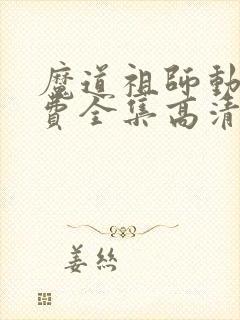 魔道祖师動
費全集高清
姜丝